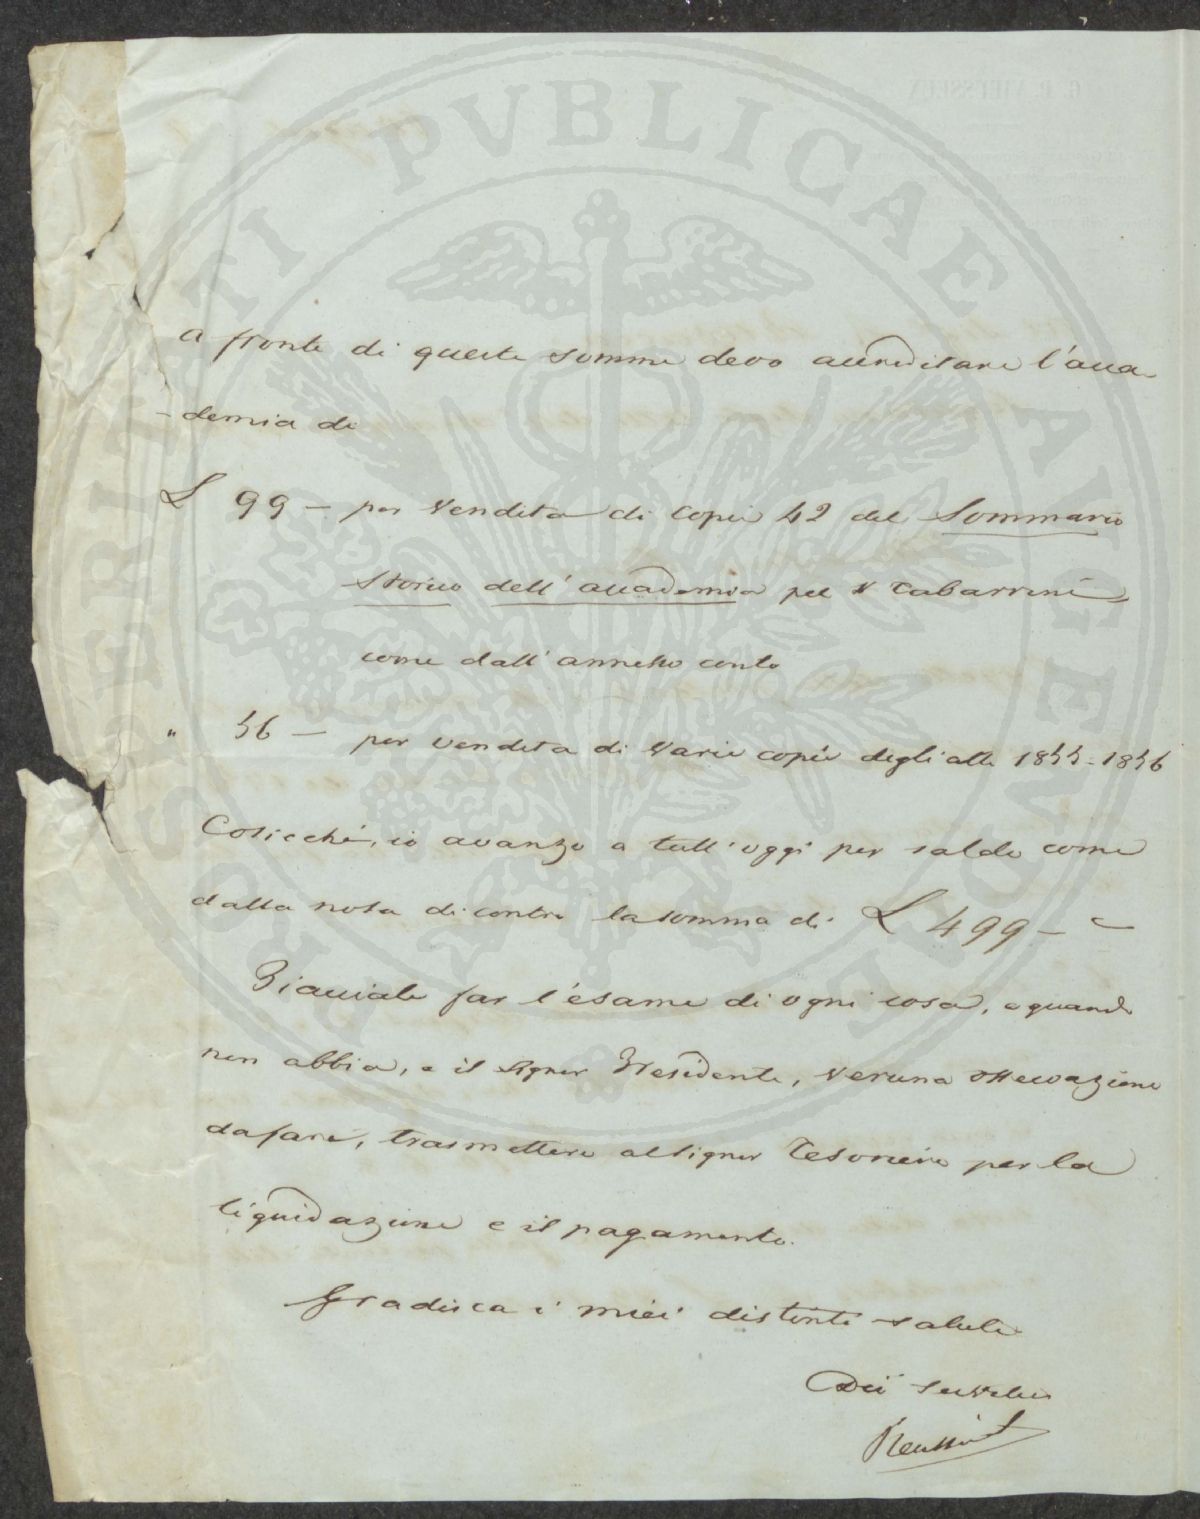 PROSPERITATI PVBLICAE AVGENDAE
G. P. VIEUSSEUX
a fronte di queste somme devo accreditare l'acca
-demia di
L 99 – per vendita di copie 42 del Sommario
storico dell'accademia del Tabarrini
come dall'annesso conto
" 56 – per vendita di varie copie degli atti 1855-1856
Cosicchè, io avanzo a tutt'oggi per saldo come
dalla nota di contro la somma di L 499 –
Piacciale far l'esame di ogni cosa, e quando
non abbia, e il signor Presidente, veruna osservazione
da fare, trasmettere al signor Tesoriere per la
liquidazione e il pagamento.
Gradisca i miei distinti saluti
Reussner